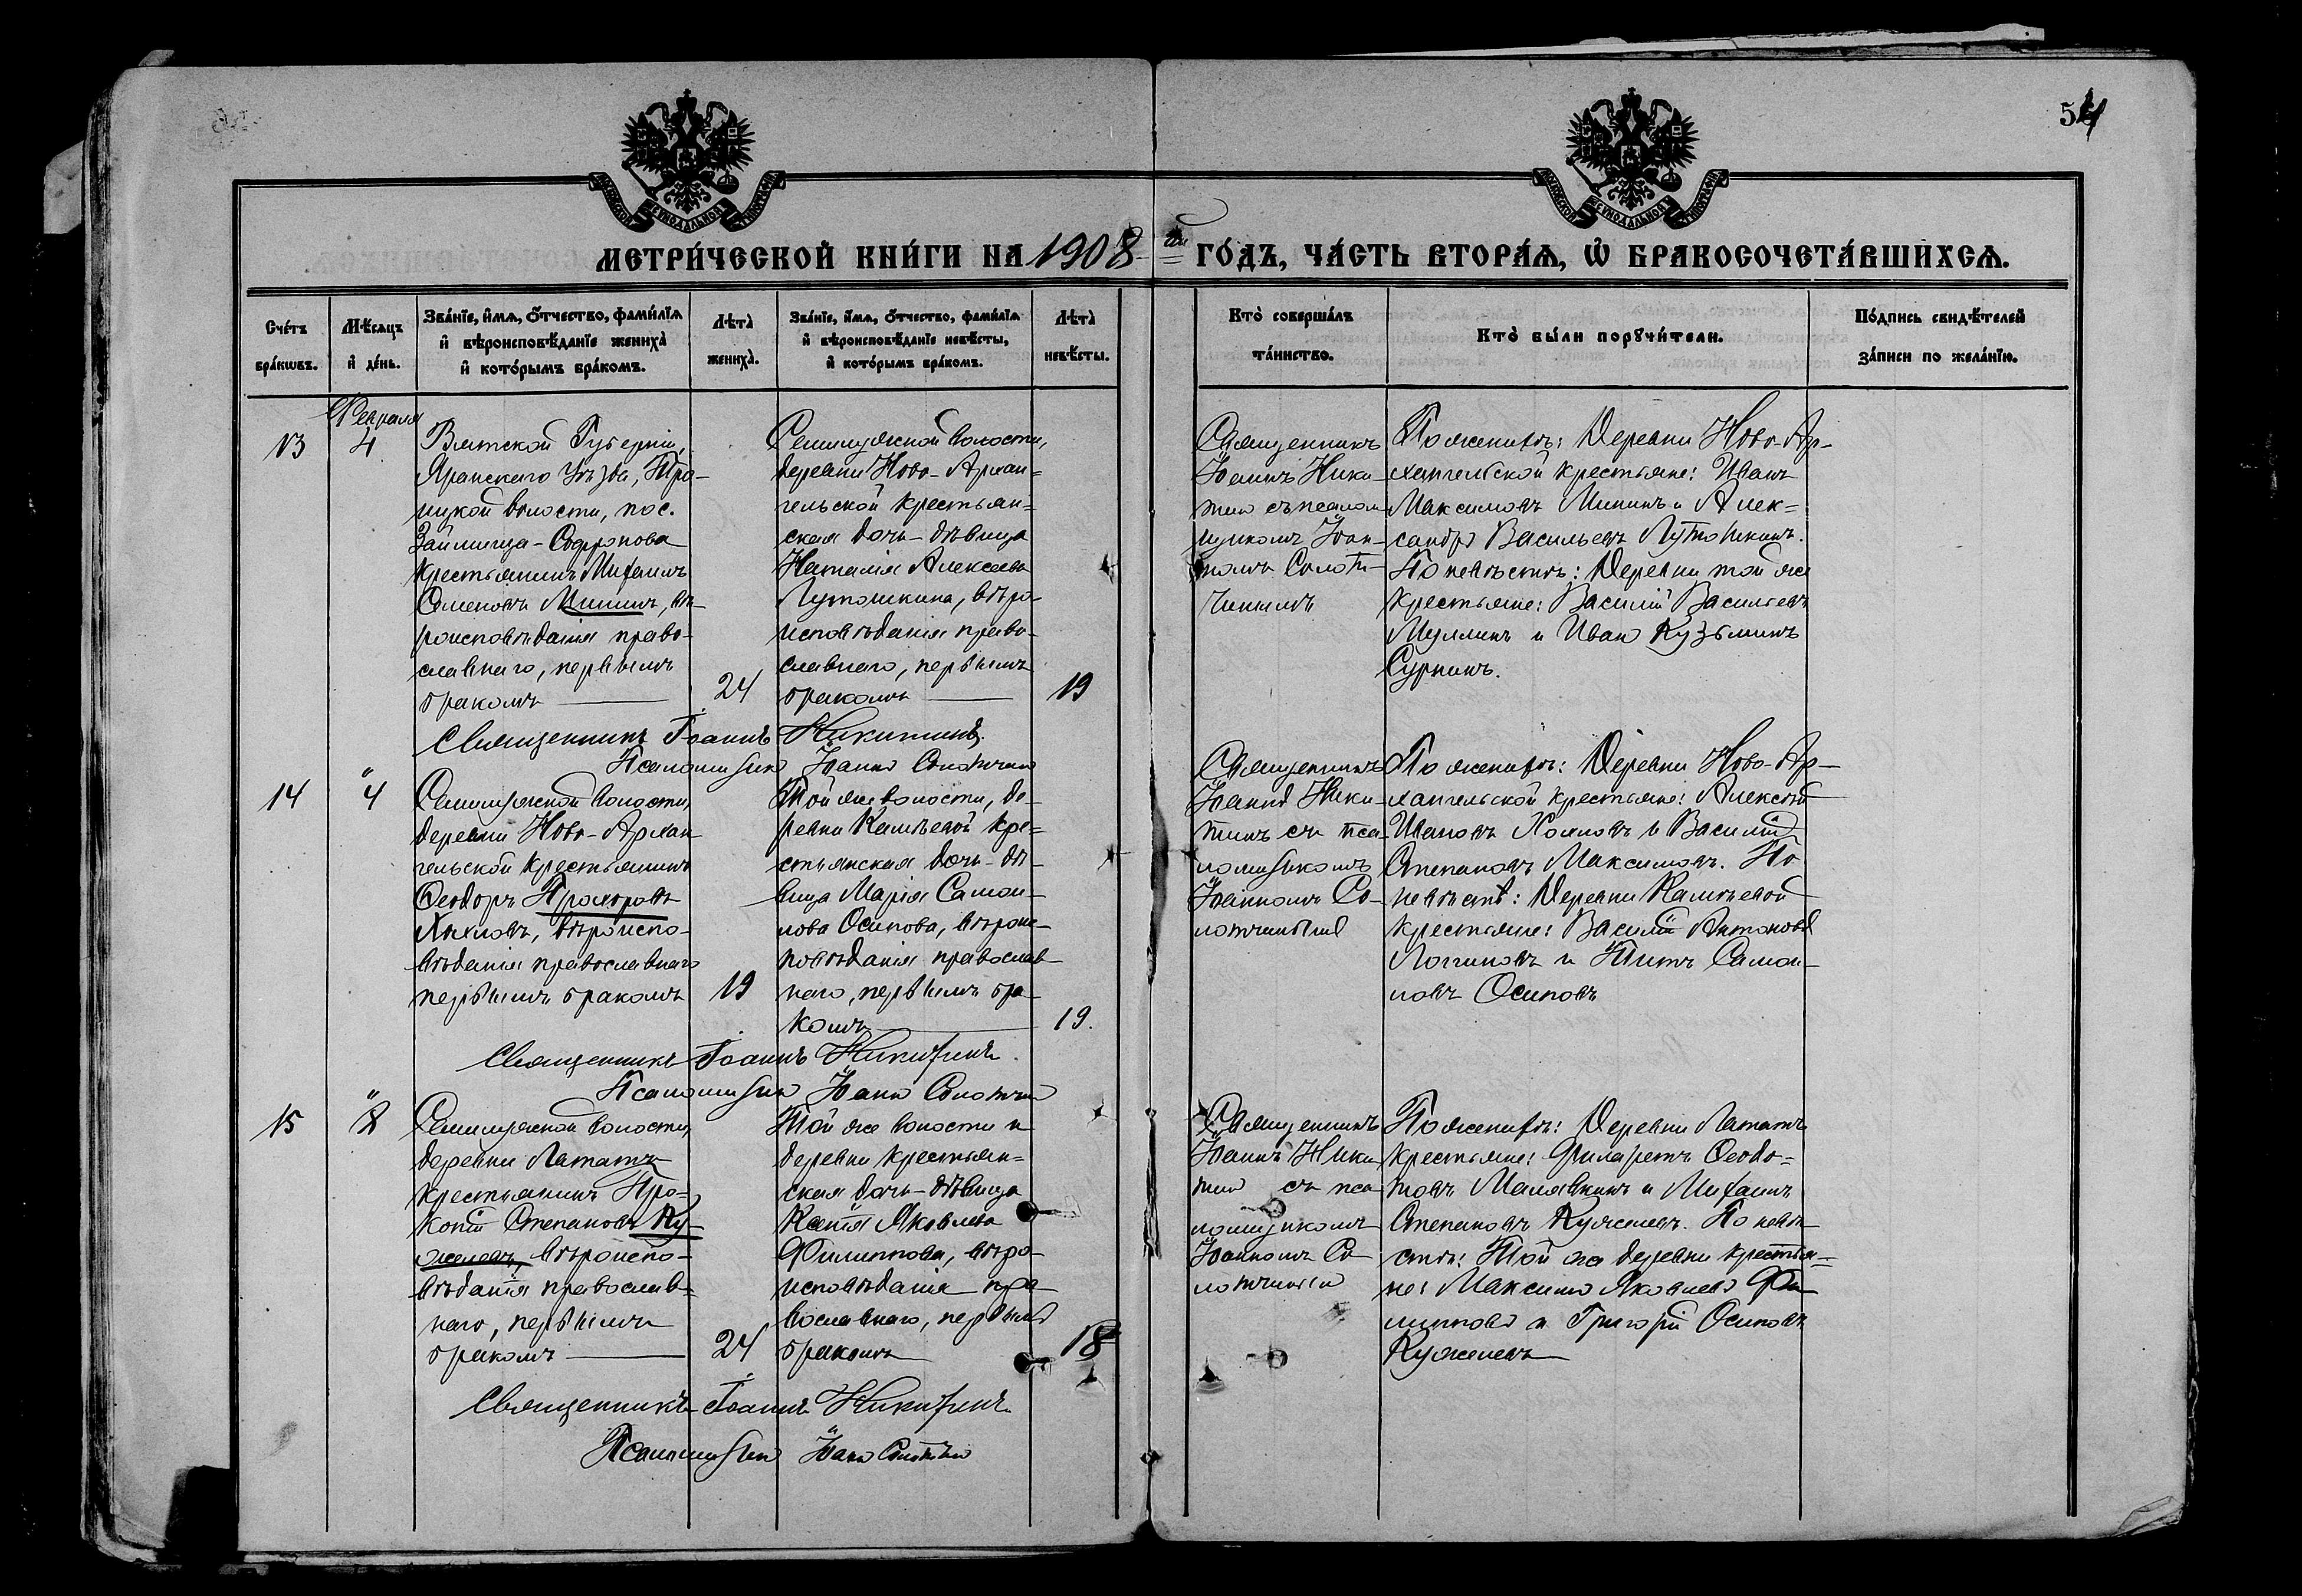 54
МЕТРИ́ЧЕСКОЙ КНИ́ГИ НА 1908 ГО́ДЪ, ЧА́СТЬ ВТОРА́Ѧ, Ѽ БРАКОСОЧЕТА́ВШИХСѦ.
Сче́тъ бра́кѡвъ.
Мѣ́сѧцъ и҆ де́нь.
Зва́нїе, и҆́мѧ, ѻ҆́тчество, фами́лїѧ и҆ вѣроисповѣ́данїе жениха̀ и҆ кото́рымъ бра́комъ.
Лѣта̀ жениха̀.
Зва́нїе, и҆́мѧ, ѻ҆́тчество, фами́лїѧ и҆ вѣроисповѣ́данїе невѣ́сты, и҆ кото́рымъ бра́комъ.
Лѣта̀ невѣ́сты.
Кто̀ соверша́лъ та́инство.
Кто̀ бы́ли порꙋчи́тели.
По́дпись свидѣ́телей за́писи по жела́нїю.
Февраля
13
4
Вятской Губерніи,
Яранскаго Уѣзда, Тро-
ицкой волости, поc.
Займища-Софронова
крестьянинъ Михаилъ
Семеновъ Мининъ, вѣ-
роисповѣданія право-
славнаго, первымъ
бракомъ
24
волости,
деревни Ново-Архан-
гельской крестьян-
ская дочь-дѣвица
Наталія Алексѣева
Лутошкина, вѣро-
исповѣданія право-
славнаго, первымъ
бракомъ
19
Священникъ
Іоаннъ Ники-
тин съ псалом-
щикомъ Іоан-
номъ Солот-
чинымъ
По женихѣ: Деревни Ново-Ар-
хангельской крестьяне: Иванъ
Максимовъ Мининъ и Алек-
сандръ Васильевъ Лутошкинъ.
По невѣстѣ: Деревни той же
крестьяне: Василій Васильевъ
и Иван Кузьминъ
Суркинъ.
Священникъ Іоаннъ Никитинъ.
Псаломщикъ Іоаннъ Солотчин
14
" 4
волости,
деревни Ново-Архан-
гельской крестьянинъ
Ѳеодоръ Прохоровъ
вѣроиспо-
вѣданія православнаго
первымъ бракомъ
19
Той же волости, де-
ревни Камѣевой кре-
стьянская дочь-дѣ-
вица Марія Самои-
лова Осипова, вѣроис-
повѣданія православ-
наго, первымъ бра-
комъ
19.
Священникъ
Іоаннъ Ники-
тинъ съ пса-
ломщикомъ
Іоанномъ Со-
лотчинымъ
По женихѣ: Деревни Ново-Ар-
хангельской крестьяне: Алексѣй
Ивановъ и Василій
Степановъ Максимовъ. По
невѣстѣ: Деревни Камѣевой
крестьяне: Василій Антоновъ
Логиновъ и Титъ Самои-
ловъ Осиповъ
Священникъ Іоаннъ Никитинъ.
Псаломщикъ Іоаннъ Солотчин
15
" 8
волости,
деревни Лататъ
крестьянинъ Про-
копій Степановъ Ку-
желевъ, вѣроиспо-
вѣданія православ-
наго, первымъ
бракомъ
24
Той же волости и
деревни крестьян-
ская дочь-дѣвица
Ксенія Яковлева
Филиппова, вѣро-
исповѣданія пра-
вославнаго, первымъ
бракомъ
18
Священникъ
Іоаннъ Ники-
тин съ пса-
ломщикомъ
Іоанномъ Со-
лотчиным
По женихѣ: Деревни Лататъ
крестьяне: Филаретъ Ѳеодо-
товъ Малявкинъ и Михаилъ
Степановъ Кужелевъ. По невѣ-
стѣ: Той же деревни крестья-
не: Максимъ Яковлевъ Фи-
липповъ и Григорій Осиповъ
Кужелевъ
Священникъ Іоаннъ Никитинъ
Псаломщикъ Іоаннъ Солотчин